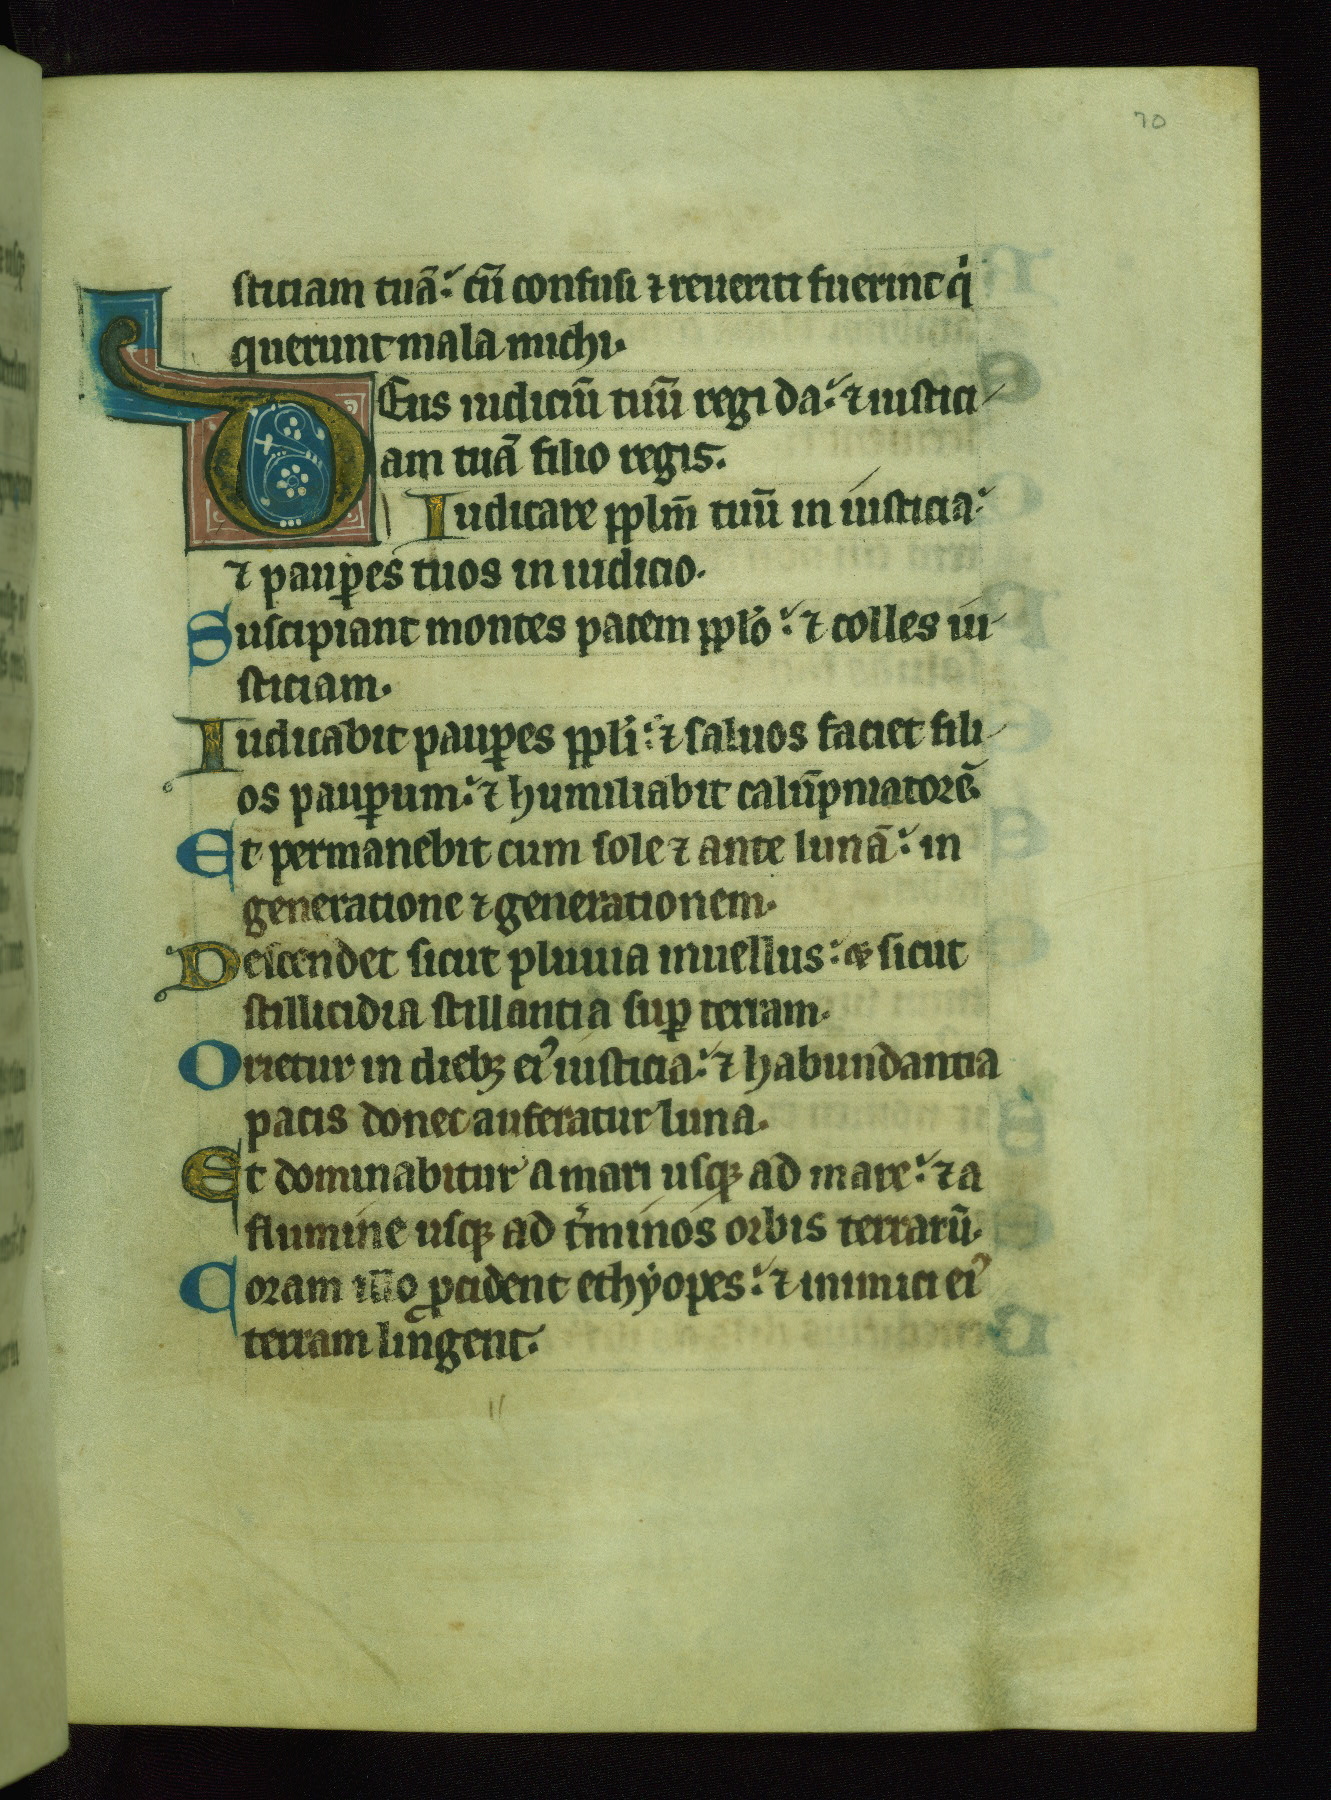 70
sticiam tuā: cū confusi ⁊ reueriti fuerint qͥ
querunt mala michi.
Deus iudiciū tuū regi da: ⁊ iustici
am tuā filio regis.
Iudicare pplm̄ tuū in iusticia:
⁊ paup̱es tuos in iudicio.
Suscipiant montes pacem pplo̓: ⁊ colles iu
sticiam.
Iudicabit paup̱es ppli̓: ⁊ saluos faciet fili
os paup̱um: ⁊ humiliabit calūpniatorē.
Et permanebit cum sole ⁊ ante lunā: in
generatione ⁊ generationem.
Descendet sicut pluuia inuellus: & sicut
stillicidia stillantia sup̱ terram.
Orietur in diebꝫ eiꝰ iusticia: ⁊ habundantia
pacis donec auferatur luna.
Et dominabitur a mari usqꝫ ad mare: ⁊ a
flumine usqꝫ ad t̓minos orbis terrarū.
Coram illo ꝓcident ethyopes: ⁊ inimici eiꝰ
terram lingent.